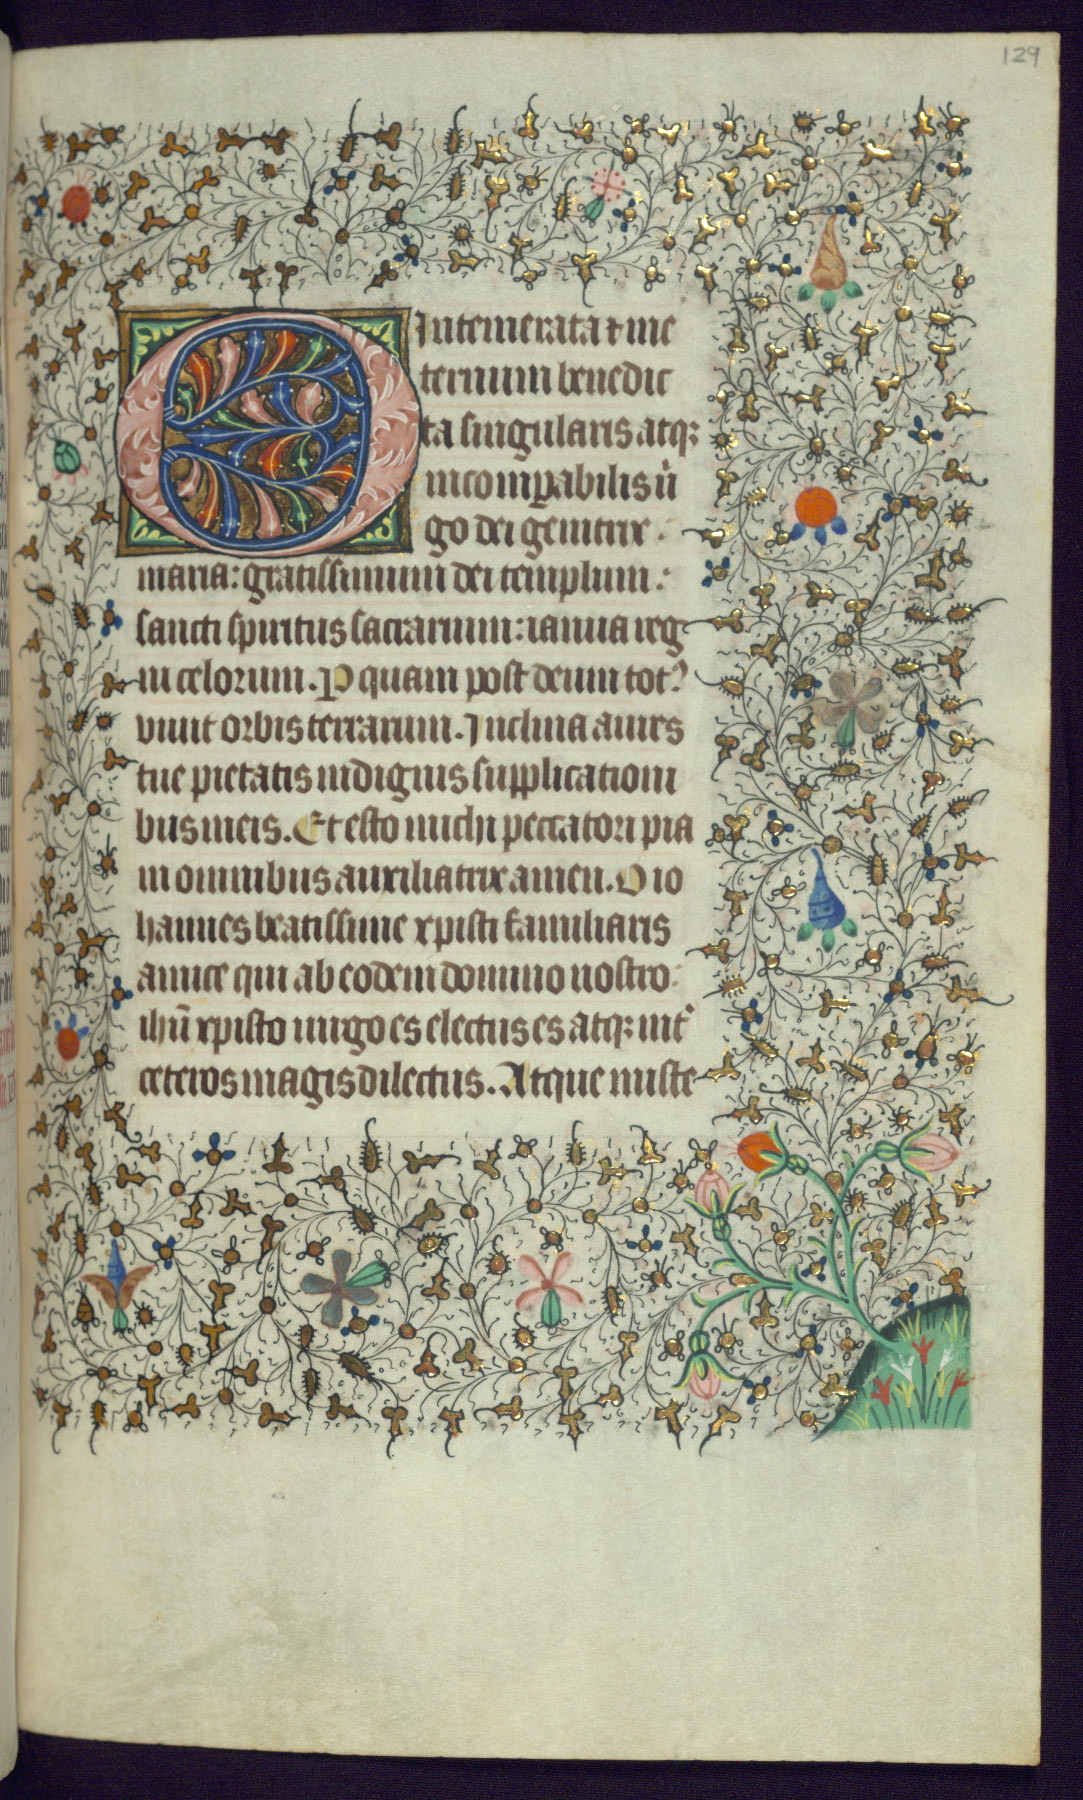 129
O Intemerata ⁊ in e
ternum benedic
ta singularis atq;
incomparabilis ũ
go dei genitrix.
maria: gratissimum dei templum:
sancti spiritus sacrarium: ianua reg
ni celorum. P quam post deum tot᷒
viuit orbis terrarum. Inclina aures
tue pietatis indignis supplicationi
bus meis. Et esto michi peccatori pia
in omnibus auxiliatrix amen. O io
hannes beatissime xpisti familiaris
amice qui ab eodem domino nostro.
ihũ xpisto uirgo es electus es atq; int᷒
ceteros magis dilectus. Atque miste